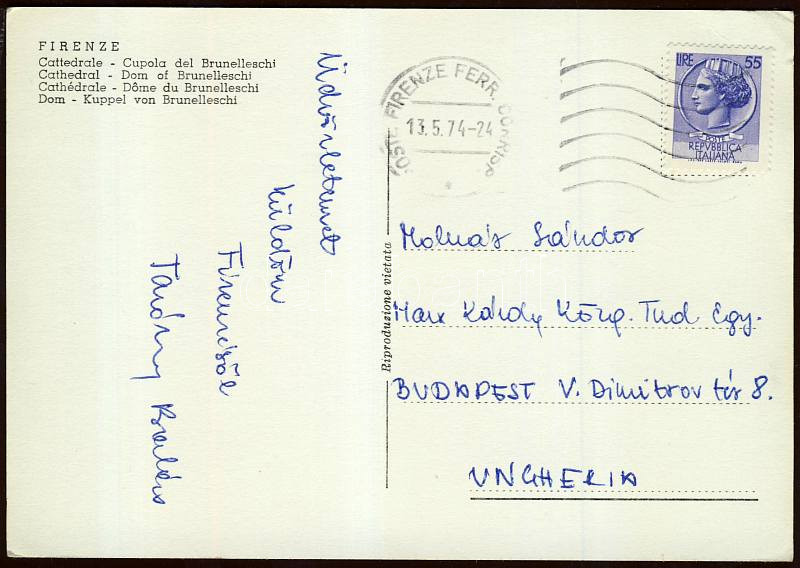 FIRENZE
Cattedrale - Cupola del Brunelleschi
Cathedral - Dom of Brunelleschi
Cathédrale - Dôme du Brunelleschi
Dom - Kuppel von Brunelleschi
Üdvözletemet
küldöm
Firenzéből
Balázs
Riproduzione vietata
POSTE FIRENZE FERR. CORRISP.
13.5.74-24
LIRE 55
POSTE
REPVBBLICA
ITALIANA
Molnár Sándor
Marx Károly Közg. Tud Egy.
BUDAPEST V. Dimitrov tér 8.
UNGHERIA